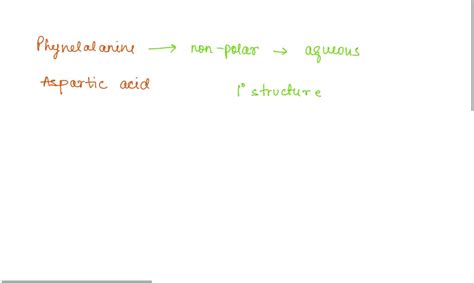 Phynelalanine → non-polar → aqueous
Aspartic acid
1° structure